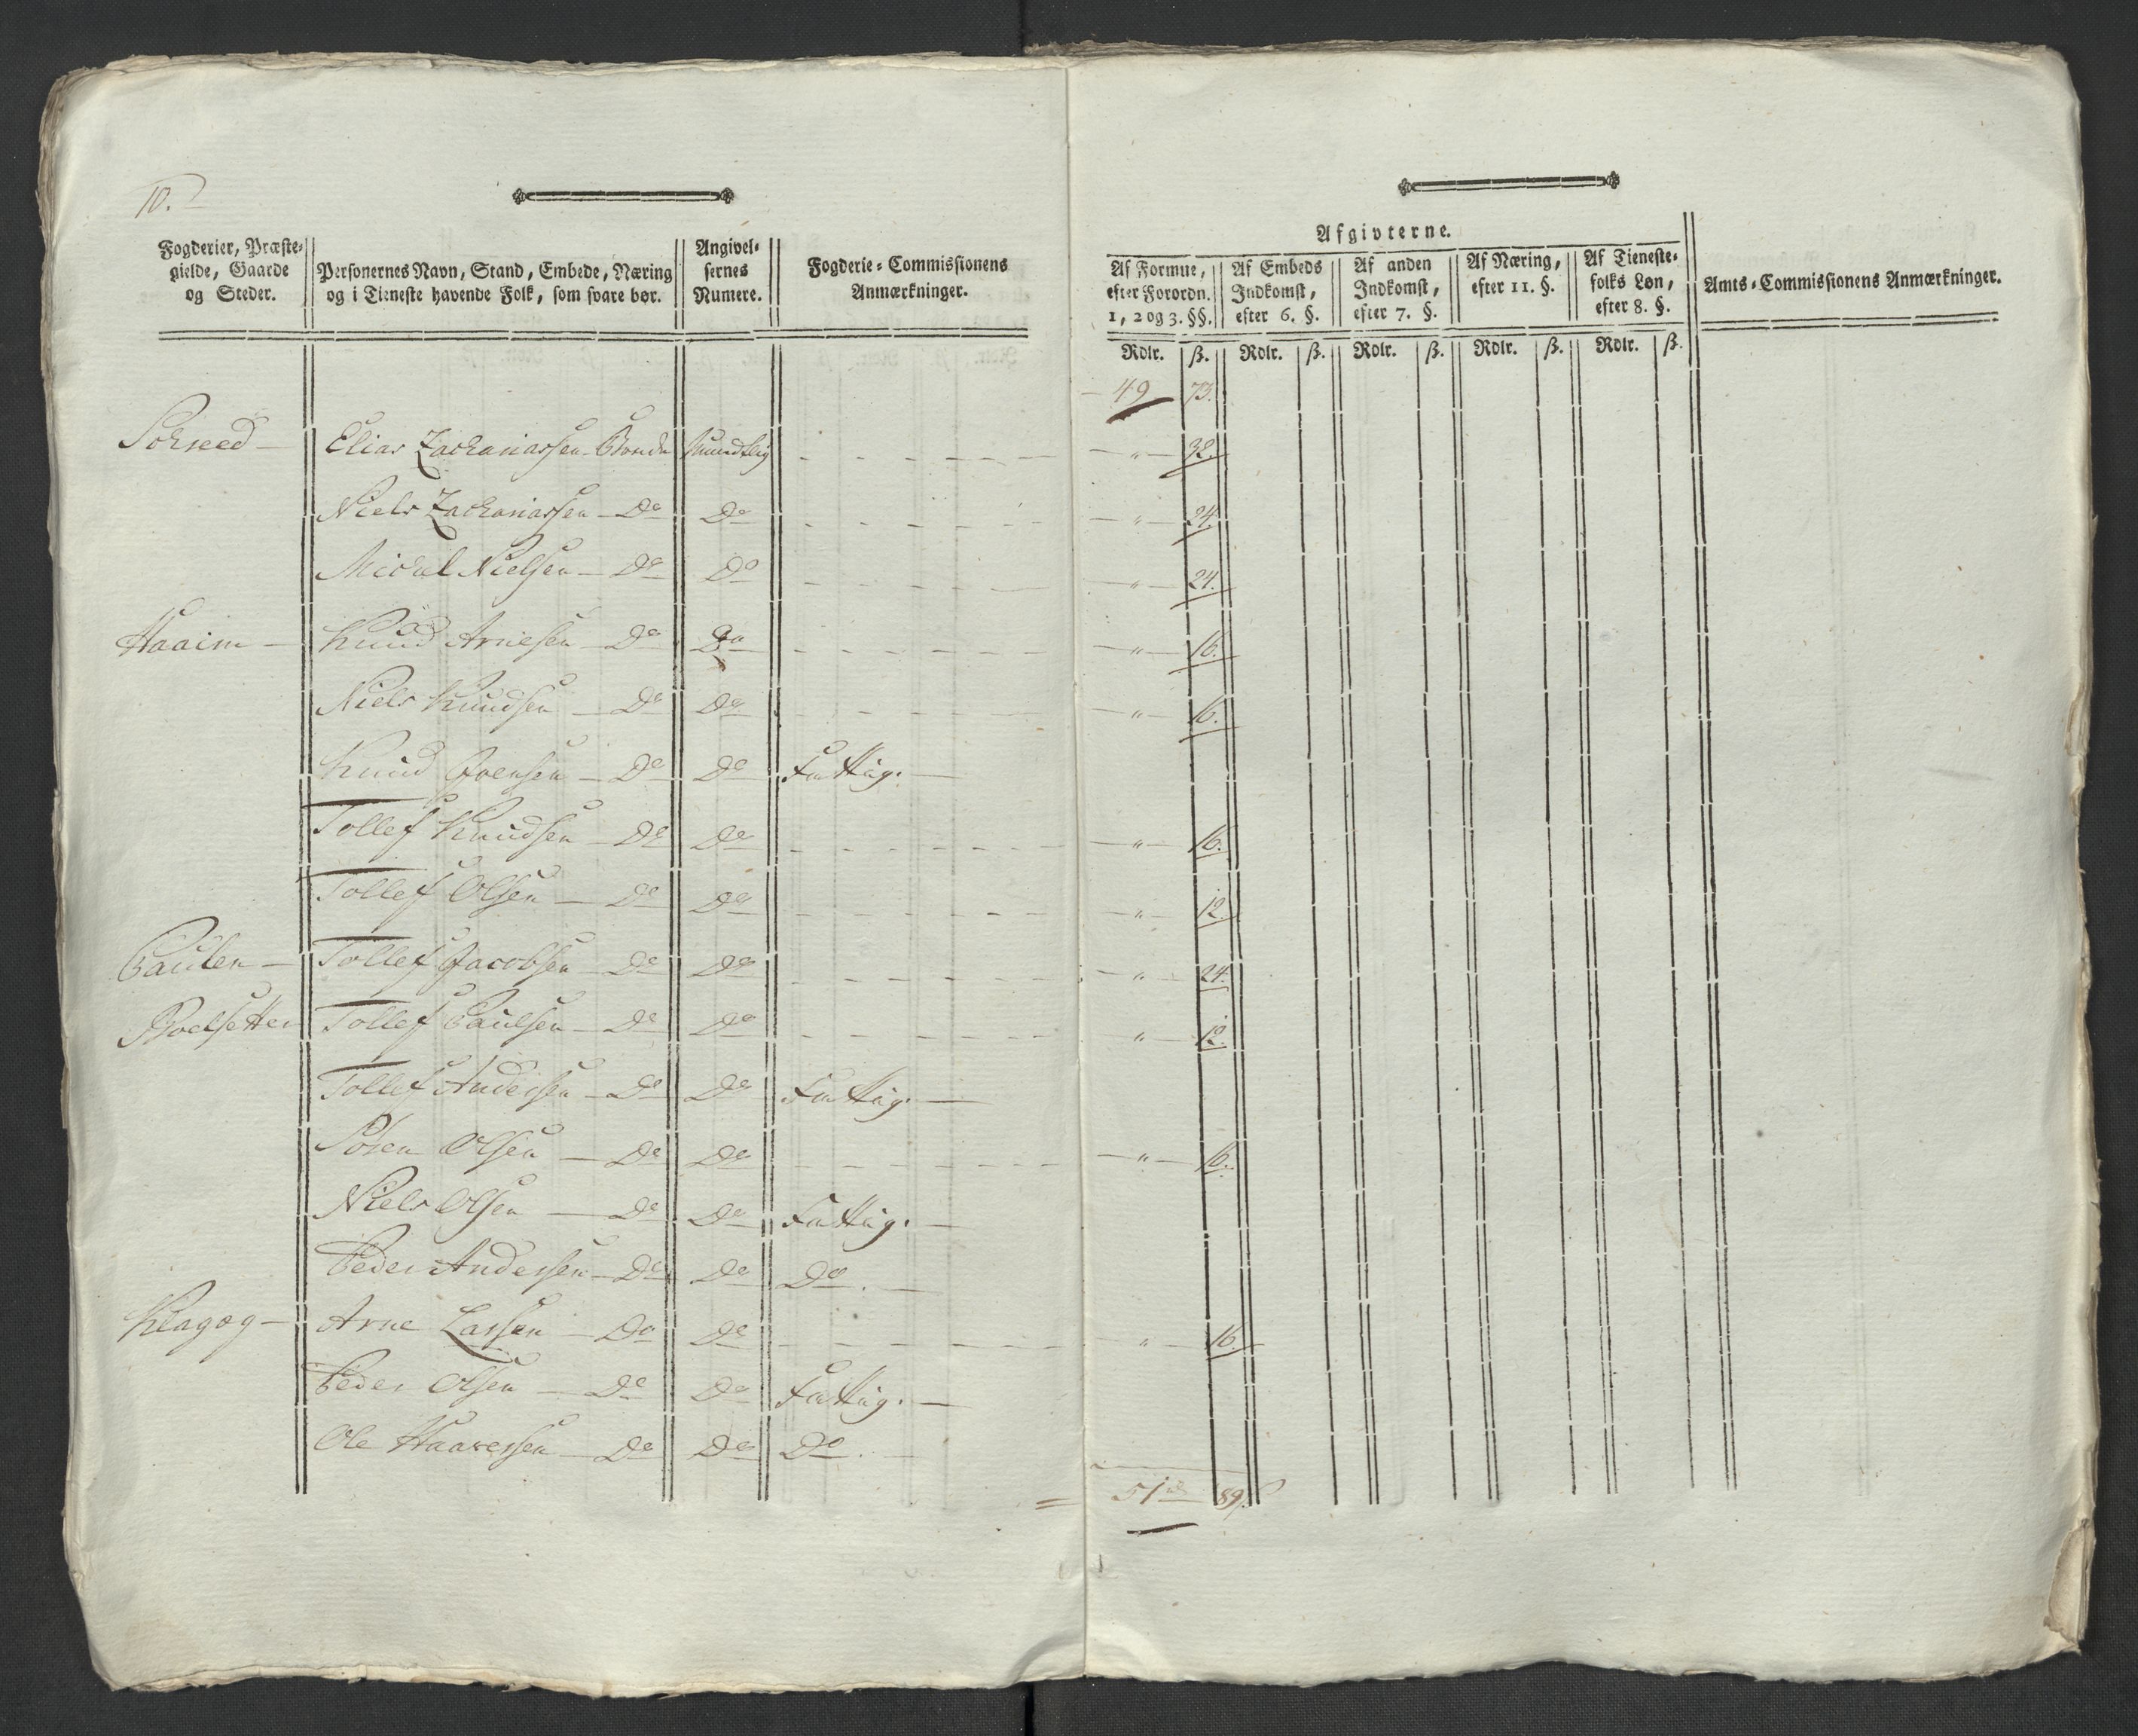 10.
Fogderier, Præste-
gielde, Gaarde
og Steder.
Personernes Navn, Stand, Embede, Næring
og i Tieneste havende Folk, som svare bør.
Angivel-
sernes
Numere.
Fogderie-Commissionens
Anmærkninger.
Afgivterne.
Af Formue,
efter Forordn.
1, 2 og 3. §§.
Af Embeds
Indkomst,
efter 6. §.
Af anden
Indkomst,
efter 7. §.
Af Næring,
efter 11. §.
Af Tieneste-
folks Løn,
efter 8. §.
Amts-Commissionens Anmærkninger.
Rdlr. ß. Rdlr. ß. Rdlr. ß. Rdlr. ß. Rdlr. ß.
49 73.
Elias Zachariassen - Bonde Mundtlig - " - 32.
Niels Zachariassen - Do Do - " - 24.
Michel Nielsen - Do Do - " - 24.
Haaim - Knud Arnesen - Do Do - " - 16.
Niels Knudsen - Do Do - " - 16.
Knud Joensen - Do Do Fattig. -
Tollef Knudsen - Do Do - " - 16.
Tollef Olsen - Do Do - " - 12.
Tollef Jacobsen - Do Do - " - 24.
Tollef Paulsen - Do Do - " - 12.
Tollef Andersen - Do Do Fattig. -
Olsen - Do Do - " - 16.
Niels Olsen - Do Do Fattig. -
Peder Andersen - Do Do Do. -
Arne Larsen - Do Do - " - 16.
Peder Olsen - Do Do Fattig. -
Ole Haavessen - Do Do Do. -
= 51 rd 89 ß